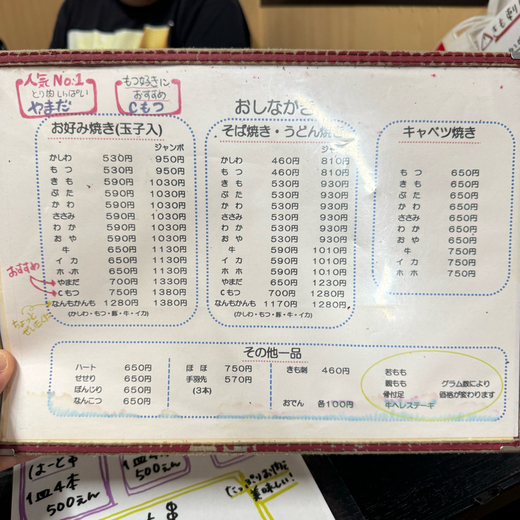 人気No.1
とり肉いっぱい
やまだ
もつ好きに
おすすめ
Cもつ
おしながき
お好み焼き(玉子入)
ジャンボ
かしわ 530円 950円
もつ 530円 950円
きも 590円 1030円
ぶた 590円 1030円
かわ 590円 1030円
ささみ 590円 1030円
わか 590円 1030円
おや 590円 1030円
牛 650円 1130円
イカ 650円 1130円
ホホ 650円 1130円
おすすめ
やまだ 700円 1330円
Cもつ 750円 1380円
ちょっと
なんもかんも 1280円 1380円
(かしわ・もつ・豚・牛・イカ)
そば焼き・うどん焼き
かしわ 460円 810円
もつ 460円 810円
きも 530円 930円
ぶた 530円 930円
かわ 530円 930円
ささみ 530円 930円
わか 530円 930円
おや 530円 930円
牛 590円 1010円
イカ 590円 1010円
ホホ 590円 1010円
やまだ 650円 1230円
Cもつ 700円 1280円
なんもかんも 1170円 1280円
(かしわ・もつ・豚・牛・イカ)
キャベツ焼き
もつ 650円
きも 650円
ぶた 650円
かわ 650円
ささみ 650円
わか 650円
おや 650円
牛 750円
イカ 750円
ホホ 750円
その他一品
ハート 650円
せせり 650円
ぼんじり 650円
なんこつ 650円
ほほ 750円
手羽先 570円
(3本)
きも刺 460円
おでん 各100円
若もも
親もも
骨付足
牛ヘレステーキ
グラム数により
価格が変わります
はーと串
1皿4本
500えん
1皿4本
500えん
たっぷりお肉で
美味しい!